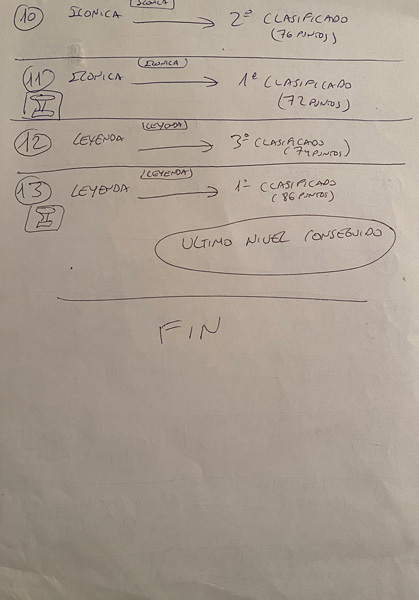 ICONICA
10 ICONICA → 2º CLASIFICADO
(76 PUNTOS)
ICONICA
11 ICONICA → 1º CLASIFICADO
(72 PUNTOS)
LEYENDA
12 LEYENDA → 3º CLASIFICADO
(74 PUNTOS)
LEYENDA
13 LEYENDA → 1º CLASIFICADO
(86 PUNTOS)
ULTIMO NIVEL CONSEGUIDO
FIN